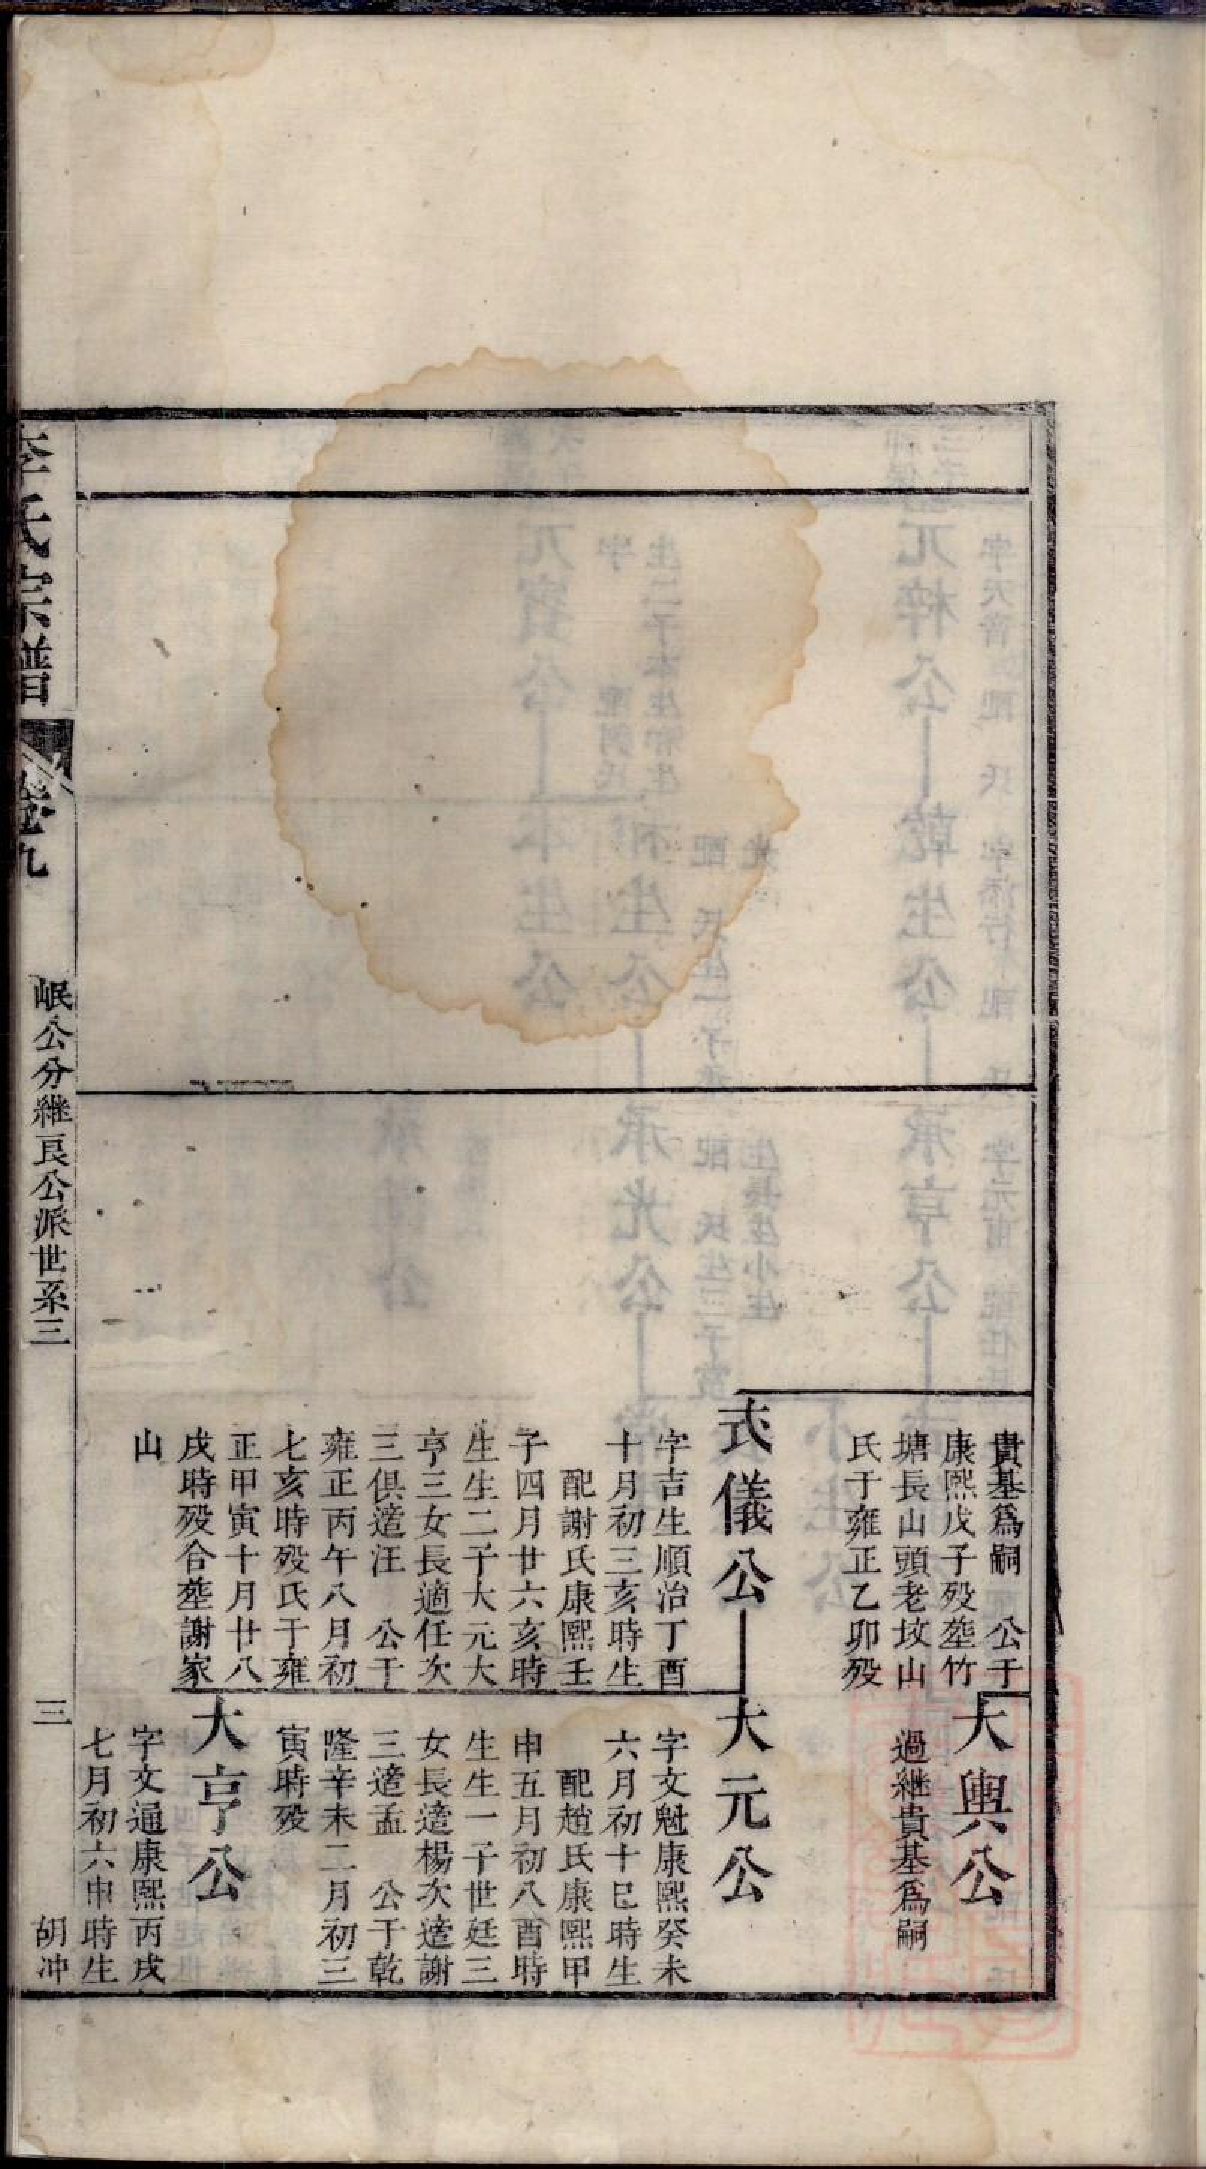 貴基爲嗣　公于
康熙戊子殁塟竹
塘長山頭老坟山
氏于雍正乙卯殁
式儀公
字吉生順治丁酉
十月初三亥時生
配謝氏康熙壬
子四月廿六亥時
生生二子大元大
亨三女長適任次
三俱適汪　公于
雍正丙午八月初
七亥時殁氏于雍
正甲寅十月廿八
戌時殁合塟謝家
山
大輿公
過継貴基爲嗣
大元公
字文魁康熙癸未
六月初十巳時生
配趙氏康熙甲
申五月初八酉時
生生一子世廷三
女長適楊次適謝
三適孟　公于乾
隆辛未二月初三
寅時殁
大亨公
字文通康熙丙戌
七月初六申時生
李氏宗譜
卷九
岷公分継良公派世系三
三
胡冲